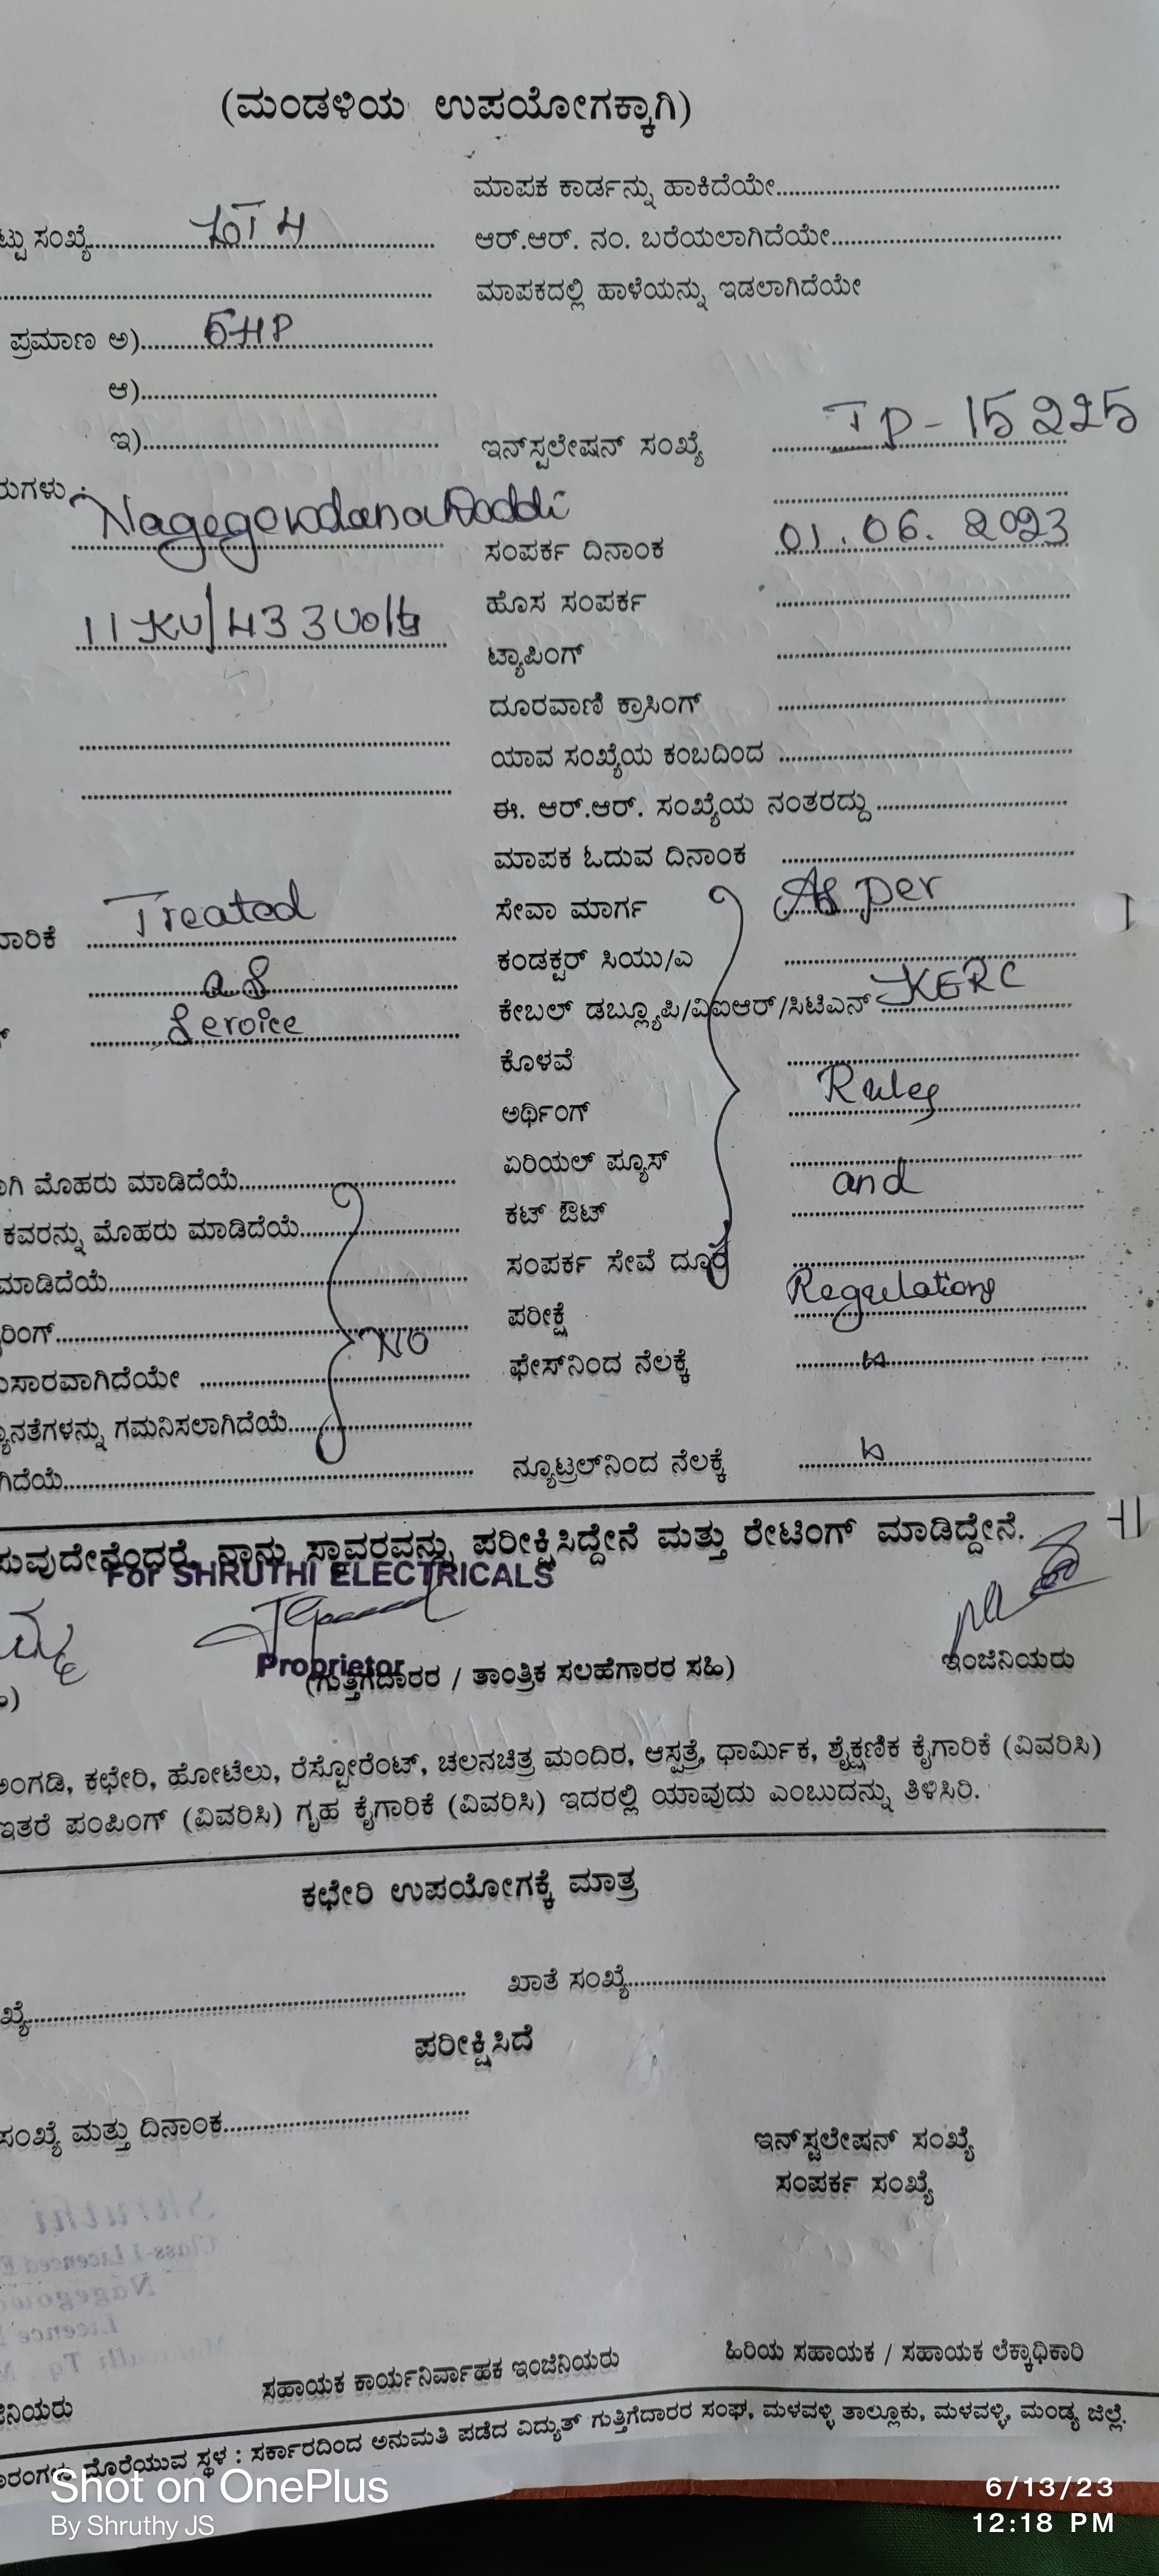 (ಮಂಡಳಿಯ ಉಪಯೋಗಕ್ಕಾಗಿ)
ಮಾಪಕ ಕಾರ್ಡನ್ನು ಹಾಕಿದೆಯೇ
ಸಂಖ್ಯೆ
ಆರ್.ಆರ್. ನಂ. ಬರೆಯಲಾಗಿದೆಯೇ
ಮಾಪಕದಲ್ಲಿ ಹಾಳೆಯನ್ನು ಇಡಲಾಗಿದೆಯೇ
ಪ್ರಮಾಣ ಅ) 5HP
ಆ)
ಇ)
ಇನ್‌ಸ್ಟಲೇಷನ್ ಸಂಖ್ಯೆ TP-15225
Nagegowdanadoddi
ಸಂಪರ್ಕ ದಿನಾಂಕ 01.06.2023
ಹೊಸ ಸಂಪರ್ಕ
11KV/433Volts
ಟ್ಯಾಪಿಂಗ್
ದೂರವಾಣಿ ಕ್ರಾಸಿಂಗ್
ಯಾವ ಸಂಖ್ಯೆಯ ಕಂಬದಿಂದ
ಈ. ಆರ್.ಆರ್. ಸಂಖ್ಯೆಯ ನಂತರದ್ದು
ಮಾಪಕ ಓದುವ ದಿನಾಂಕ
Treated
ಸೇವಾ ಮಾರ್ಗ As per
as
ಕಂಡಕ್ಟರ್ ಸಿಯು/ಎ
Service
ಕೇಬಲ್ ಡಬ್ಲ್ಯೂಪಿ/ವಿಐಆರ್/ಸಿಟಿಎನ್ KERC
ಕೊಳವೆ
ಅರ್ಥಿಂಗ್ Rules
ಏರಿಯಲ್ ಪ್ಯೂಸ್
ಮೊಹರು ಮಾಡಿದೆಯೆ
ಕಟ್ ಔಟ್ and
ಕವರನ್ನು ಮೊಹರು ಮಾಡಿದೆಯೆ
ಸಂಪರ್ಕ ಸೇವೆ ದೂರ
ಮಾಡಿದೆಯೆ
ಪರೀಕ್ಷೆ Regulations
NO
ಫೇಸ್‌ನಿಂದ ನೆಲಕ್ಕೆ
ಗಮನಿಸಲಾಗಿದೆಯೆ
ನ್ಯೂಟ್ರಲ್‌ನಿಂದ ನೆಲಕ್ಕೆ
ನಾನು ಸ್ಥಾವರವನ್ನು ಪರೀಕ್ಷಿಸಿದ್ದೇನೆ ಮತ್ತು ರೇಟಿಂಗ್ ಮಾಡಿದ್ದೇನೆ.
For SHRUTHI ELECTRICALS
Proprietor
(ಗುತ್ತಿಗೆದಾರರ / ತಾಂತ್ರಿಕ ಸಲಹೆಗಾರರ ಸಹಿ)
ಇಂಜಿನಿಯರು
ಅಂಗಡಿ, ಕಛೇರಿ, ಹೋಟೆಲು, ರೆಸ್ಟೋರೆಂಟ್, ಚಲನಚಿತ್ರ ಮಂದಿರ, ಆಸ್ಪತ್ರೆ, ಧಾರ್ಮಿಕ, ಶೈಕ್ಷಣಿಕ ಕೈಗಾರಿಕೆ (ವಿವರಿಸಿ)
ಇತರೆ ಪಂಪಿಂಗ್ (ವಿವರಿಸಿ) ಗೃಹ ಕೈಗಾರಿಕೆ (ವಿವರಿಸಿ) ಇದರಲ್ಲಿ ಯಾವುದು ಎಂಬುದನ್ನು ತಿಳಿಸಿರಿ.
ಕಛೇರಿ ಉಪಯೋಗಕ್ಕೆ ಮಾತ್ರ
ಖಾತೆ ಸಂಖ್ಯೆ
ಪರೀಕ್ಷಿಸಿದೆ
ಸಂಖ್ಯೆ ಮತ್ತು ದಿನಾಂಕ
ಇನ್‌ಸ್ಟಲೇಷನ್ ಸಂಖ್ಯೆ
ಸಂಪರ್ಕ ಸಂಖ್ಯೆ
ಸಹಾಯಕ ಕಾರ್ಯನಿರ್ವಾಹಕ ಇಂಜಿನಿಯರು
ಹಿರಿಯ ಸಹಾಯಕ / ಸಹಾಯಕ ಲೆಕ್ಕಾಧಿಕಾರಿ
ದೊರೆಯುವ ಸ್ಥಳ : ಸರ್ಕಾರದಿಂದ ಅನುಮತಿ ಪಡೆದ ವಿದ್ಯುತ್ ಗುತ್ತಿಗೆದಾರರ ಸಂಘ, ಮಳವಳ್ಳಿ ತಾಲ್ಲೂಕು, ಮಳವಳ್ಳಿ, ಮಂಡ್ಯ ಜಿಲ್ಲೆ.
Shot on OnePlus
By Shruthy JS
6/13/23
12:18 PM